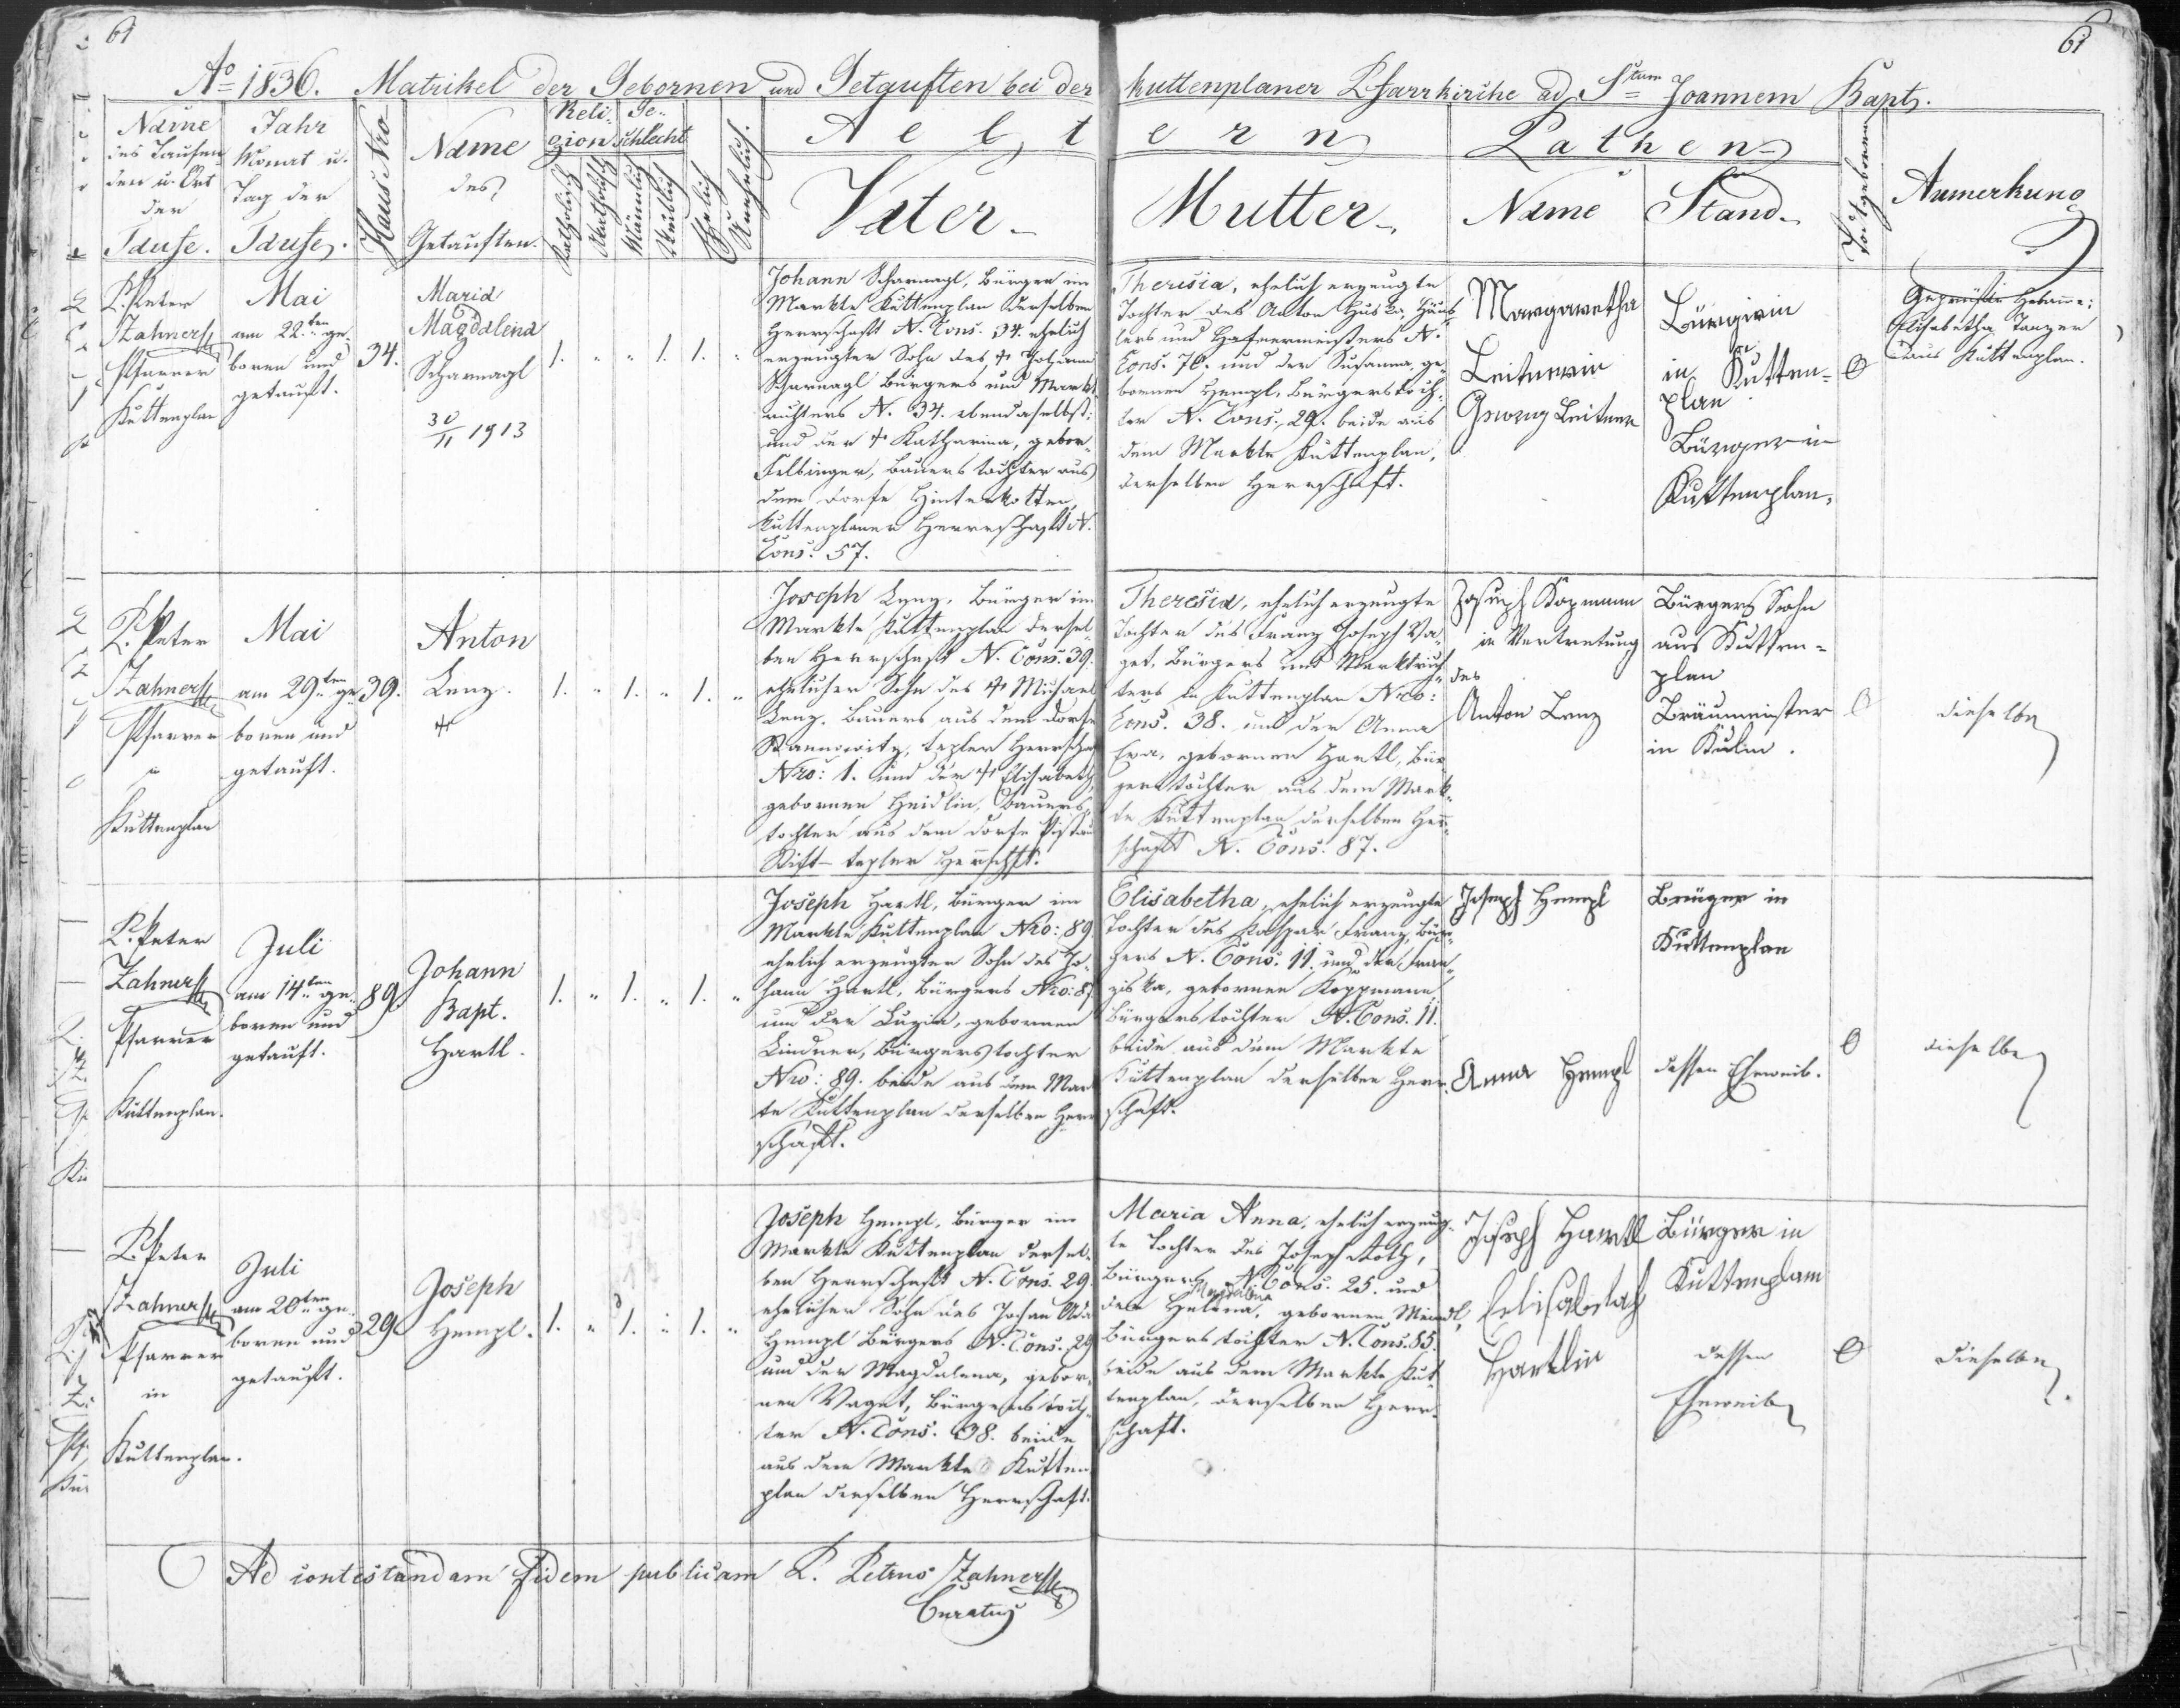 61
61
Ao 1836. Matrikel der Gebornen und Getauften bei der Kuttenplaner Pfarrkirche ad Stum Joannem Bapt.
Name
des Taufen
den u. Ort
der
Taufe.
Jahr
Monat u.
Tag der
Taufe.
Haus Nro
Name
des
Getauften.
Reli-
gion
Katholisch
Akatholisch
Ge-
schlecht
Männlich
Weiblich
Ehelich
Unehelich.
Aeltern
Vater
Mutter
Pathen
Name
Stand
Todtgeboren
Anmerkung
P. Peter
Zahner
Pfarrer
Kuttenplan
Mai
am 22ten ge-
boren und
getauft.
34.
Maria
Magdalena
Scharnagl
30/11 1913
1. " " 1. 1. "
Johann Scharnagl, Bürger im
Markte Kuttenplan derselben
Herrschaft N. Cons. 34. ehelich
erzeugter Sohn des † Johann
Scharnagl Bürgers und Markt
richters N. 34. ebendaselbst;
und der † Katharina, gebor
Felbinger, Bauers tochter aus
dem Dorfe Hinterkotten,
Kuttenplaner Herrschaft N.
Cons. 57.
Theresia, ehelich erzeugte
Tochter des Anton Huska, Häus
lers und Hafnermeisters N.
Cons. 70. und der Susanna, ge
bornen Hempl, Bürgerstoch-
ter N. Cons. 29. beide aus
dem Markte Kuttenplan,
derselben Herrschaft.
Margaretha
Leitnerin
Georg Leitner
Bürgerin
in Kutten-
plan
Bürger in
Kuttenplan.
0
Geprüfte Hebamme:
Elisabetha Tanzer
aus Kuttenplan.
P. Peter
Zahner
Pfarrer
in
Kuttenplan
Mai
am 29ten ge
boren und
getauft.
39.
Anton
Lenz.
†
1. " 1. " 1. "
Joseph Lenz, Bürger im
Markte Kuttenplan dersel-
ben Herrschaft N. Cons. 39.
ehelicher Sohn des † Michael
Lenz. Bauers aus dem Dorfe
Stannowitz, tepler Herrschaft
Nro: 1. und der † Elisabeth,
gebornen Heidlin, Bauers
tochter aus dem Dorfe Pistau
Stift-tepler Herrschft.
Theresia, ehelich erzeugte
Tochter des Franz Joseph Va-
get, Bürgers und Marktrich-
ters in Kuttenplan Nro:
Cons. 38. und der Anna
Eva, gebornen Hartl, Bür
gerstochter aus dem Mark-
te Kuttenplan derselben Herr-
schaft N. Cons. 87.
Joseph Kopmann
in Vertretung
des
Anton Lenz
Bürgers Sohn
aus Kutten-
plan
Bräumeister
in Kulm.
0
dieselbe
P. Peter
Zahner
Pfarrer
Kuttenplan.
Juli
am 14ten ge-
boren und
getauft.
89
Johann
Bapt.
Hartl.
1. " 1. " 1. "
Joseph Hartl, Bürger im
Markte Kuttenplan Nro: 89.
ehelich erzeugter Sohn des Jo-
hann Hartl, Bürgers Nro: 89
und der Luzia, gebornen
Lindner, Bürgerstochter
Nro: 89. beide aus dem Mark
te Kuttenplan derselben Herr
schaft.
Elisabetha, ehelich erzeugte
Tochter des Kaspar Franz, Bür-
gers N. Cons. 11. und der Fran-
ziska, gebornen Koppmann
Bürgerstochter N. Cons. 11.
beide aus dem Markte
Kuttenplan derselben Herr-
schaft.
Joseph Hempl
Anna Hempl
Bürger in
Kuttenplan
dessen Eheweib.
0
dieselbe
P. Peter
Zahner
Pfarrer
in
Kuttenplan.
Juli
am 20ten ge-
boren und
getauft.
29
Joseph
Hempl.
1. " 1. " 1. "
Joseph Hempl, Bürger im
Markte Kuttenplan dersel-
ben Herrschaft N. Cons. 29
ehelicher Sohn des Johan Ada
Hempl Bürgers N. Cons. 29
und der Magdalena, gebor-
nen Vaget, Bürgerstoch-
ter N. Cons. 38. beide
aus dem Markte Kutten
plan derselben Herrschaft.
Maria Anna, ehelich erzeug-
te Tochter des Joseph Roth,
Bürgers N. Cons. 25. und
Magdalena
der Helena, gebornen
Bürgerstochter N. Cons. 85.
beide aus dem Markte Kut-
tenplan, derselben Herr-
schaft.
Joseph Hartl
Elisabetah
Hartlin
Bürger in
Kuttenplam
dessen
Eheweib
0
dieselbe.
Ad contestandam fidem publicam P. Petrus Zahner
Curatus